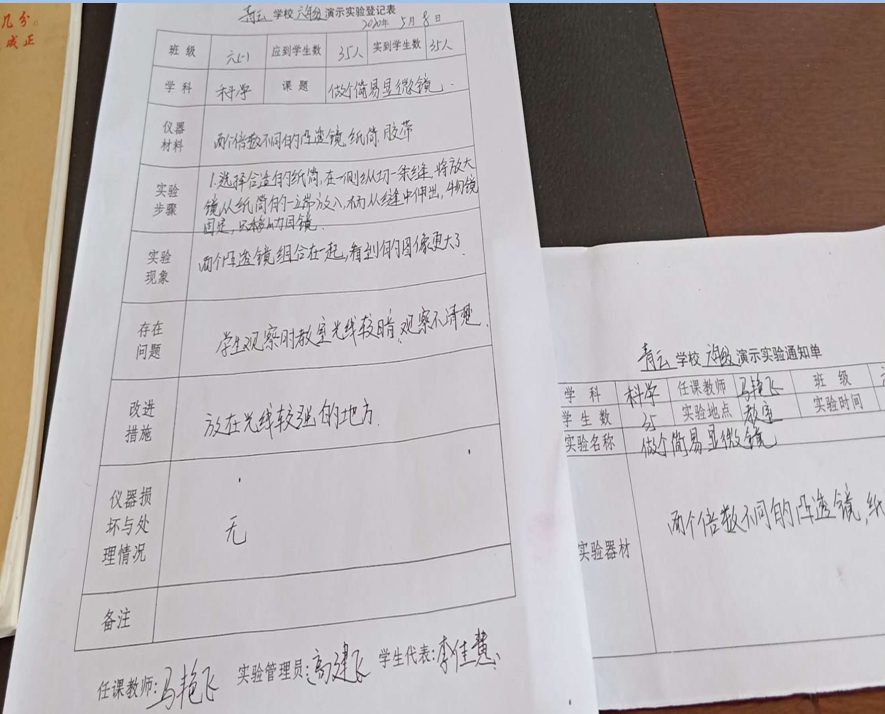 几分。
成正
青云 学校 六年级 演示实验登记表
2020年 5月 8日
班 级 六(1) 应到学生数 35人 实到学生数 35人
学 科 科学 课 题 做个简易显微镜.
仪器
材料
两个倍数不同的凸透镜,纸筒,胶带
实验
步骤
1.选择合适的纸筒,在一侧纵切一条缝,将放大
镜从纸筒的一端放入,柄从缝中伸出,
固定,
实验
现象
两个凸透镜组合在一起,看到的图像更大了.
存在
问题
学生观察时教室光线较暗,观察不清楚.
改进
措施
放在光线较强的地方.
仪器损
坏与处
理情况
无
备注
任课教师:马艳飞 实验管理员:高建飞 学生代表:李佳慧
青云 学校 六年级 演示实验通知单
学 科 科学 任课教师 马艳飞 班 级
学 生 数 35 实验地点 教室 实验时间
实验名称 做个简易显微镜
实验器材
两个倍数不同的凸透镜,纸